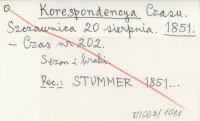 Korespondencya Czasu.
Szczawnica 20 sierpnia. 1851.
— Czas nr 202.
Sezon i braki.
Rec.: STUMMER 1851...